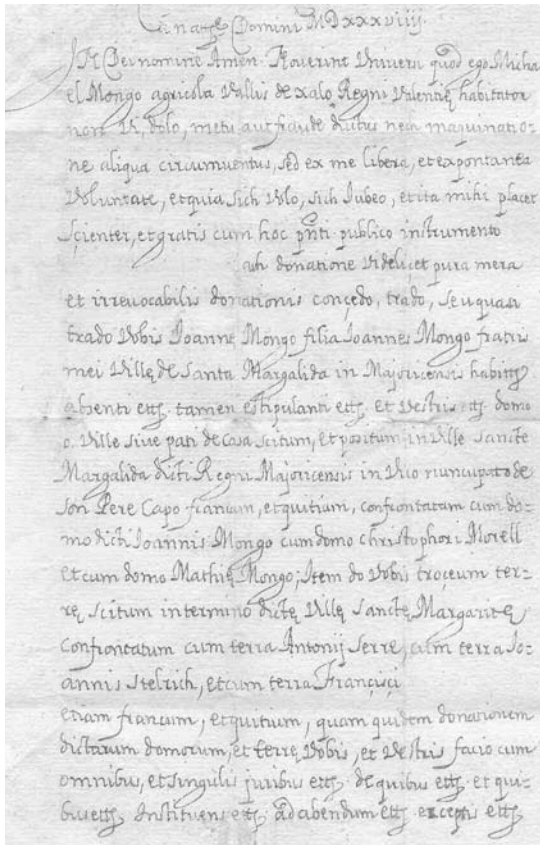 Domini MDxxxviiij.
In Dei nomine Amen. Noverint Universi quod ego Micha
el Mongo agricola Vallis de xalo Regni Valentię habitator
non Vi, dolo, metu aut fraude ductus neq; maquinatio-
ne aliqua circumventus, sed ex me libera, et expontanea
Voluntate, et quia sich Volo, sich Iubeo, et ita mihi placet
sçienter, et gratis cum hoc pnti publico instrumento
donatione Videlicet pura mera
et irrevocabilis donationis conçedo, trado, seu quasi
trado Vobis Joannę Mongo filia Joannes Mongo fratris
mei Villę de Santa Margalida in Majoricensis habitts
absenti etts. tamen estipulanti etts. et Vestris etts. domo
o. Ville sive pati de Casa scitum, et positum in Ville Sancte
Margalida dicti Regni Majoricensis in Vico nuncupato de
son Pere Capo francum, et quitium, confrontatum cum do-
mo dicti Joannis Mongo cum domo Christophori Morell
et cum domo Mathię Mongo; Item do Vobis troçeum ter-
rę scitum in termino dictę Villę Sanctę Margaritę
Confrontatum cum terra Antonij Serre, cum terra Jo-
annis Stelrich, et cum terra Françisçi
etiam francum, et quitium, quam quidem donasionem
dictarum domorum, et terrę Vobis, et Vestris facio cum
omnibus, et singulis juribus etts. de quibus etts. et qui-
bus etts. Instituens etts. ad abendum etts. exceptis etts.